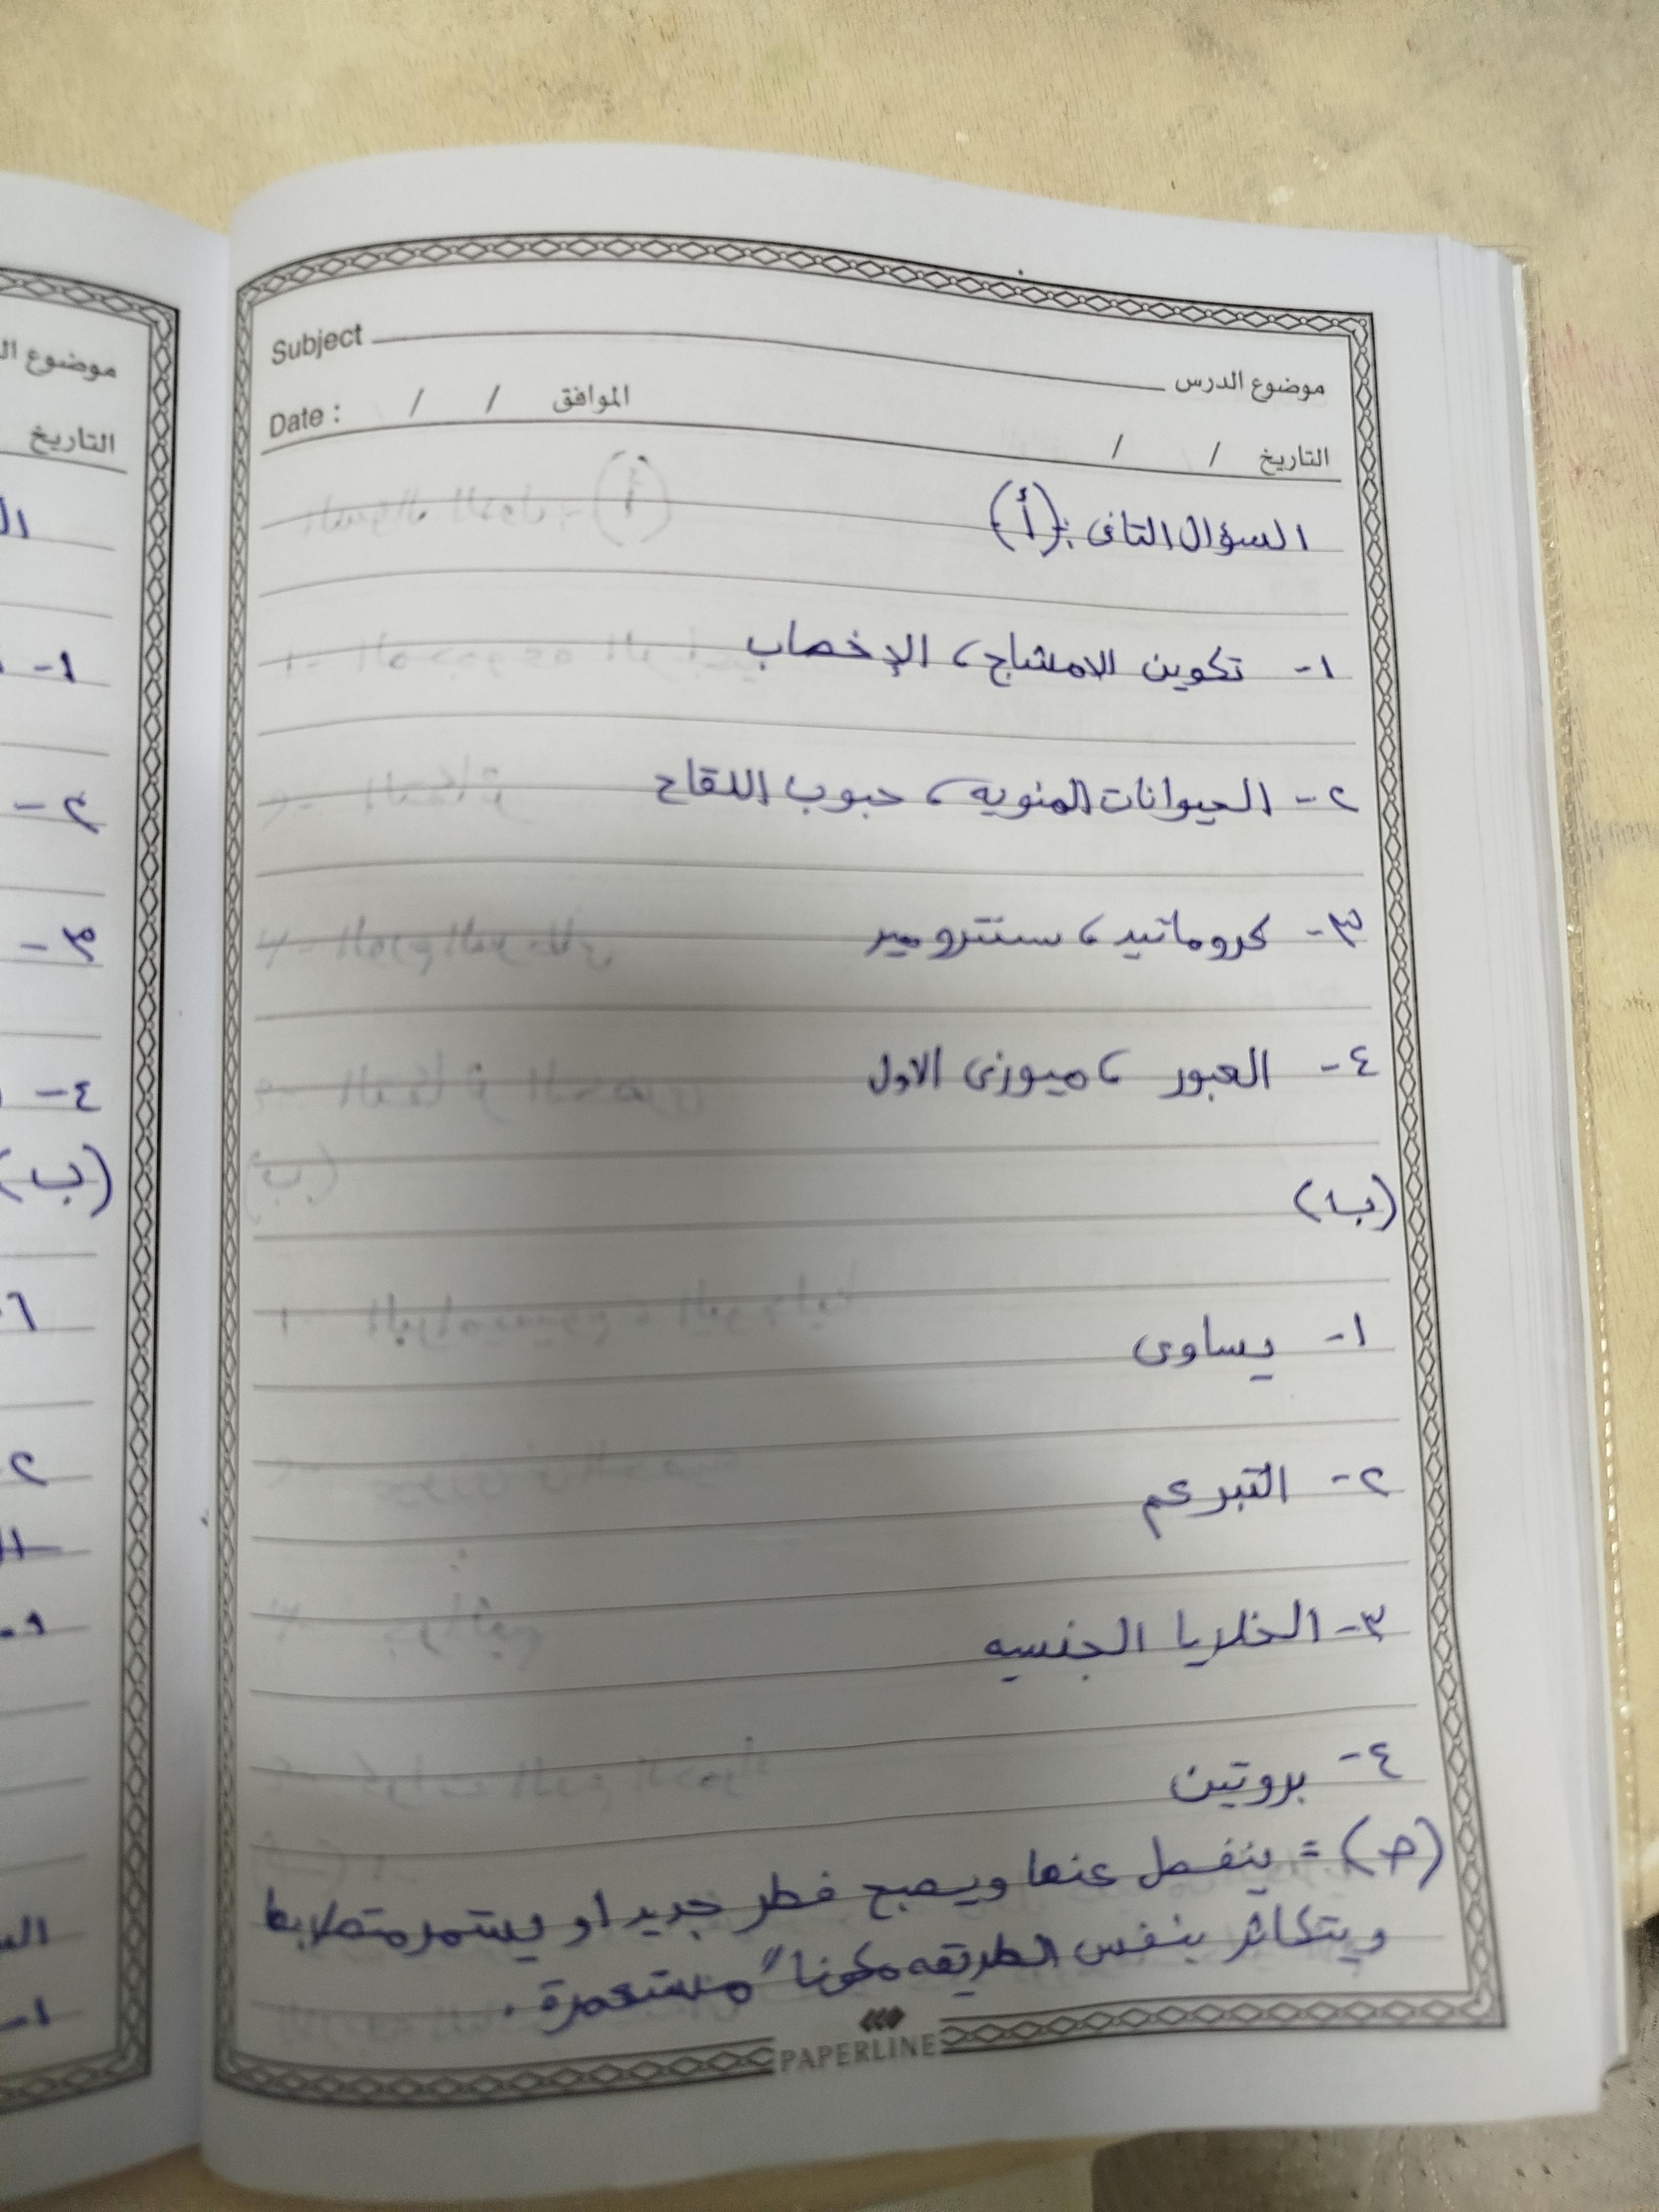 Subject موضوع الدرس
Date : / / الموافق / / التاريخ
السؤال الثانى :- (أ)
١- تكوين الامشاج، الإخصاب
٢- الحيوانات المنويه، حبوب اللقاح
٣- كروماتيد، سنترومير
٤- العبور، ميوزى الاول
(ب)
١- يساوى
٢- التبرعم
٣- الخلايا الجنسيه
٤- بروتين
(ج) = ينفصل عنها ويصبح فطر جديد او يستمر متصلا بها
ويتكاثر بنفس الطريقه مكونا" مستعمرة .
PAPERLINE
موضوع ال
التاريخ
١-
٢-
٣-
٤-
(ب)